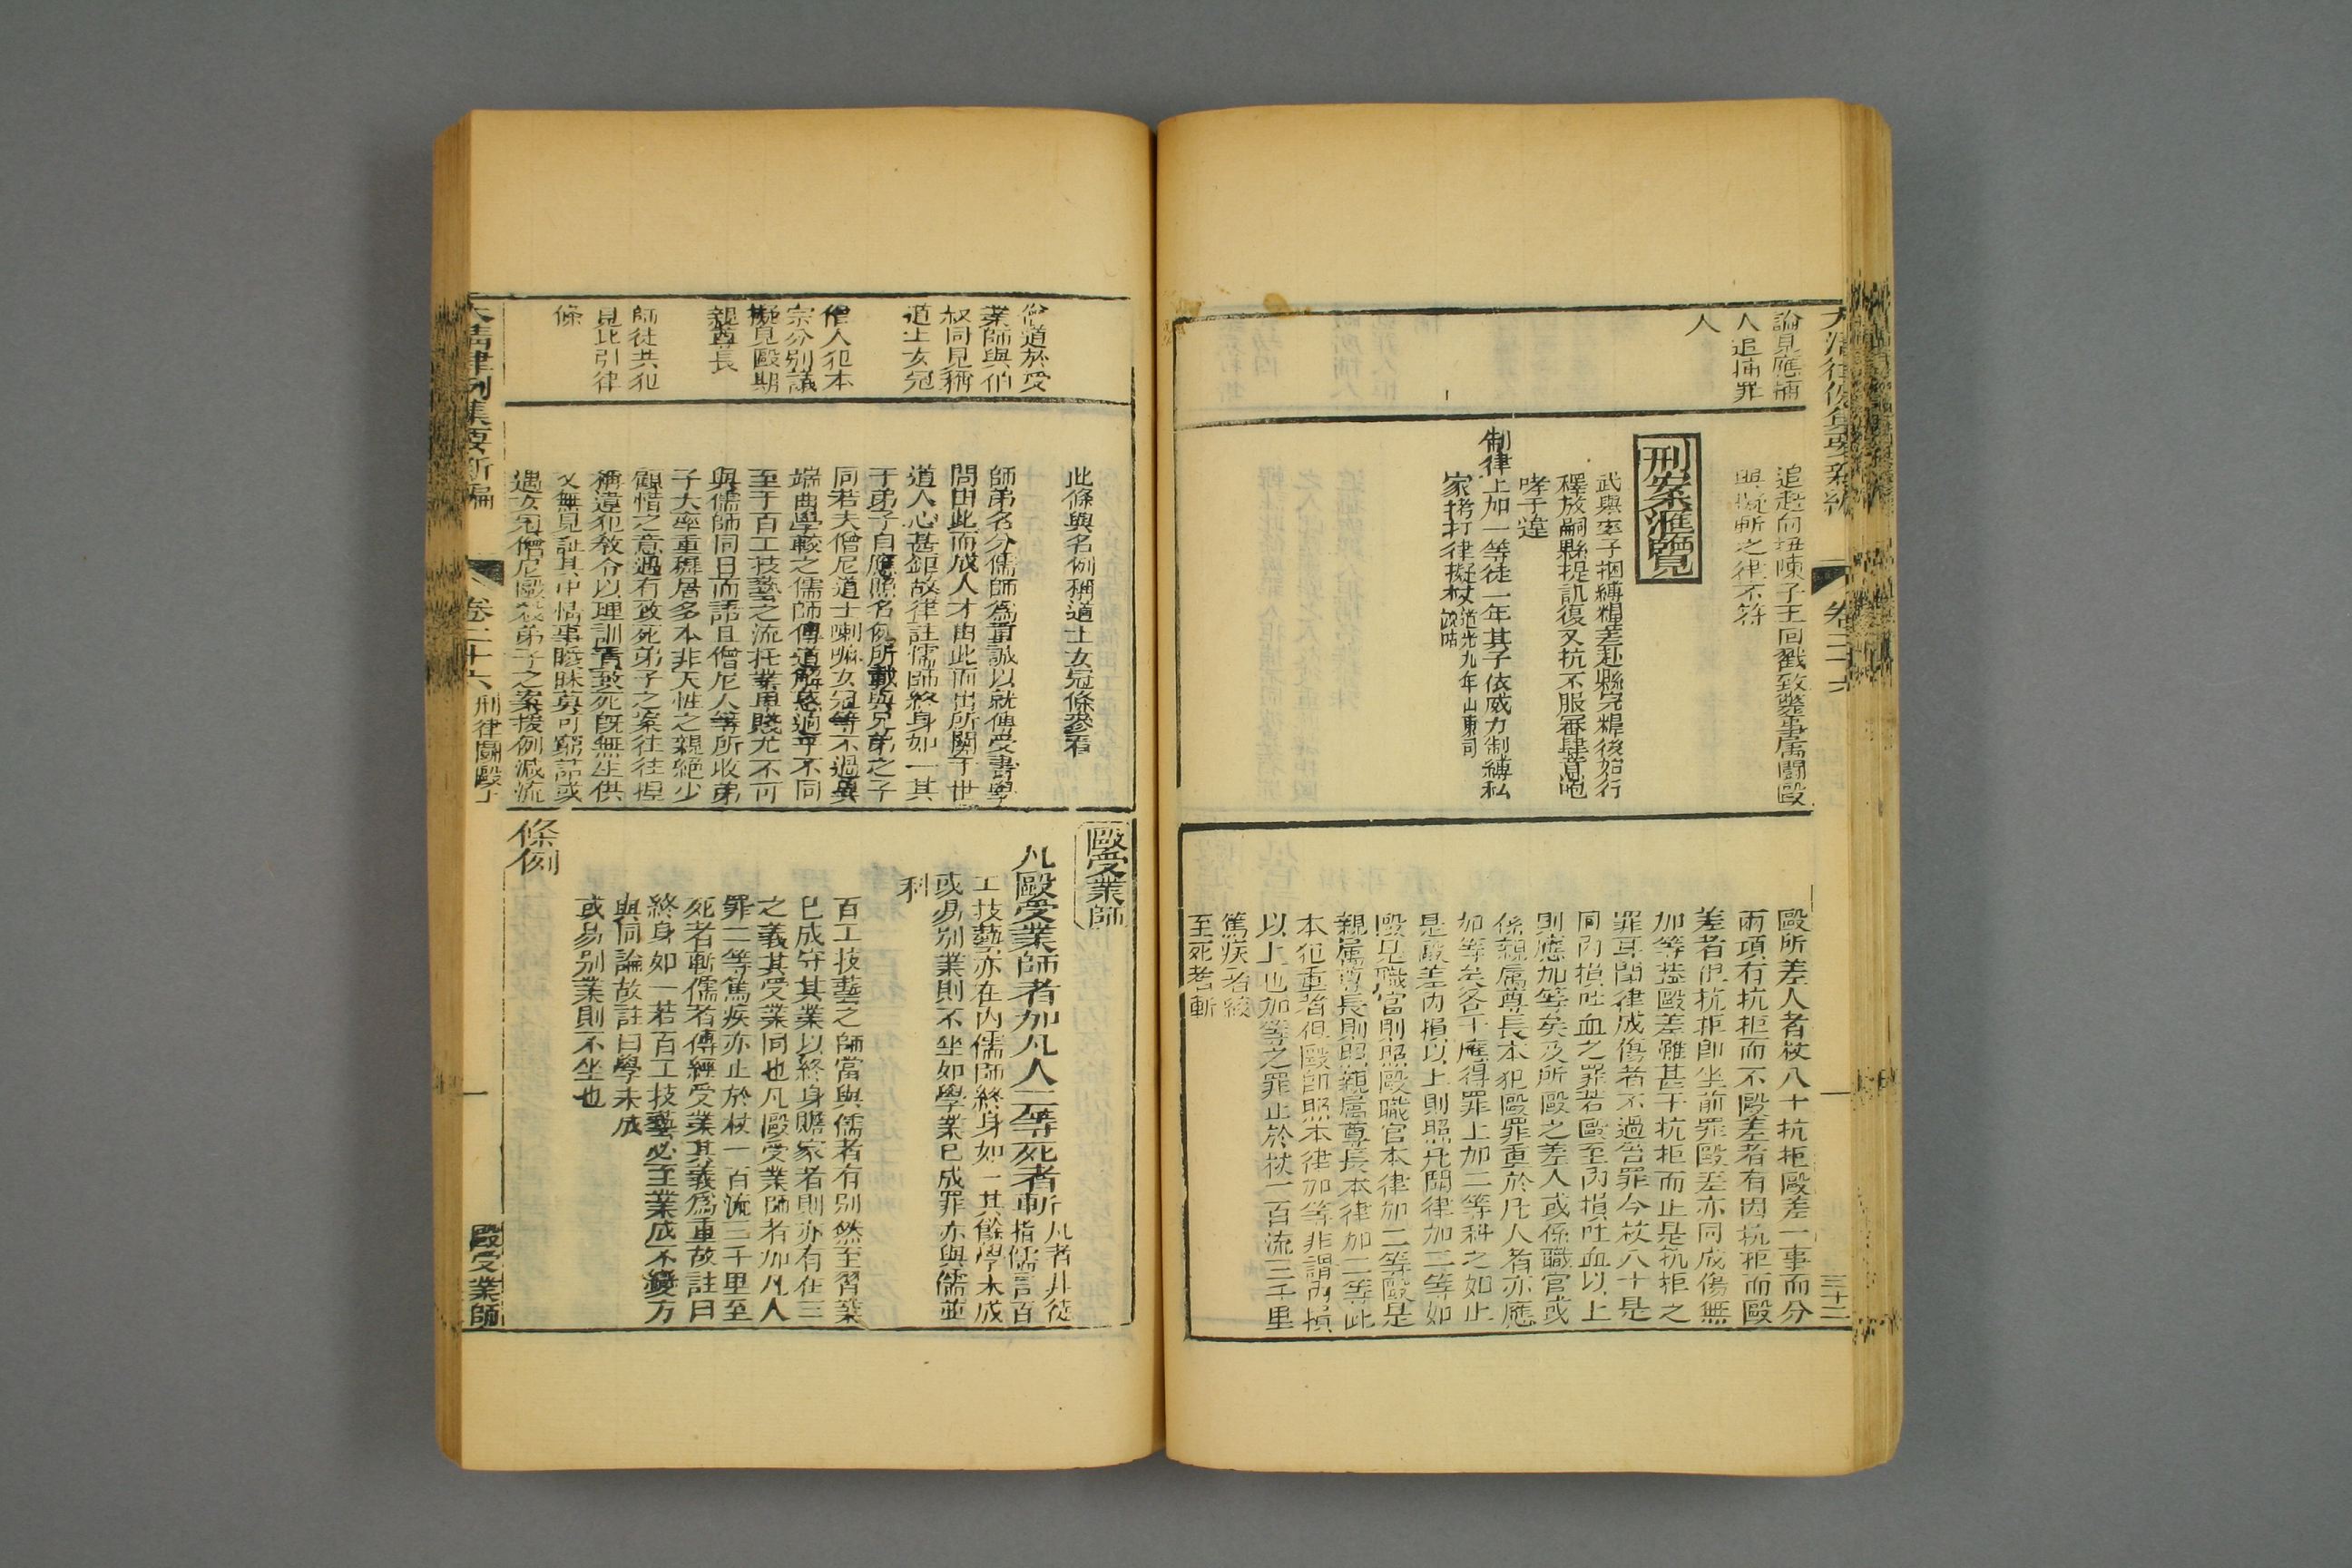 大清律例集要新編
卷二十六
三十二
論見應捕
人追捕罪
人
追趕向扭陳子王回戳致斃事屬鬪毆
與擬斬之律不符
刑案滙覽
武舉李子捆縛糧差赴縣完糧後始行
釋放嗣縣提訊復又抗不服審肆意咆
哮子違
制律上加一等徒一年其子依威力制縛私
家拷打律擬杖道光九年山東司
說帖
毆所差人者杖八十抗拒毆差一事而分
兩項有抗拒而不毆差者有因抗拒而毆
差者但抗拒卽坐前罪毆差亦同成傷無
加等葢毆差雖甚于抗拒而止是抗拒之
罪耳鬪律成傷者不過笞罪今杖八十是
同內損吐血之罪若毆至內損吐血以上
則應加等矣及所毆之差人或係職官或
係親屬尊長本犯毆罪重於凡人者亦應
加等矣各于應得罪上加二等科之如止
是毆差內損以上則照凡鬪律加二等如
毆見職官則照毆職官本律加二等毆是
親屬尊長則照親屬尊長本律加二等此
本犯重者但毆卽照本律加等非謂內損
以上也加等之罪止於杖一百流三千里
篤疾者絞
至死者斬
僧道於受
業師與伯
叔同見稱
道士女冠
僧人犯本
宗分別議
擬見毆期
親尊長
師徒共犯
見比引律
條
此條與名例稱道士女冠條參看
師弟名分儒師爲重誠以就傅受書學
問由此而成人才由此而出所關于世
道人心甚鉅故律註儒師終身如一其
于弟子自應照名例所載與兄弟之子
同若夫僧尼道士喇嘛女冠等不過異
端曲學較之儒師傳道解惑迥乎不同
至于百工技藝之流托業卑賤尤不可
與儒師同日而語且僧尼人等所收弟
子大率重穉居多本非天性之親絶少
顧惜之意遇有致死弟子之案往往捏
稱違犯敎令以理訓責致死旣無生供
又無見証其中情事曖昧莫可窮詰或
遇女冠僧尼毆殺弟子之案援例減流
毆受業師
凡毆受業師者加凡人二等死者斬凡者非徒
指儒言百
工技藝亦在內儒師終身如一其餘學未成
或易別業則不坐如學業已成罪亦與儒並
科
百工技藝之師當與儒者有別然至習業
已成守其業以終身贍家者則亦有在三
之義其受業同也凡毆受業師者加凡人
罪二等篤疾亦止於杖一百流三千里至
死者斬儒者傳經受業其義爲重故註曰
終身如一若百工技藝必至業成不變方
與同論故註曰學未成
或易別業則不坐也
條例
大清律例集要新編
卷二十六
刑律鬪毆下
一
毆受業師